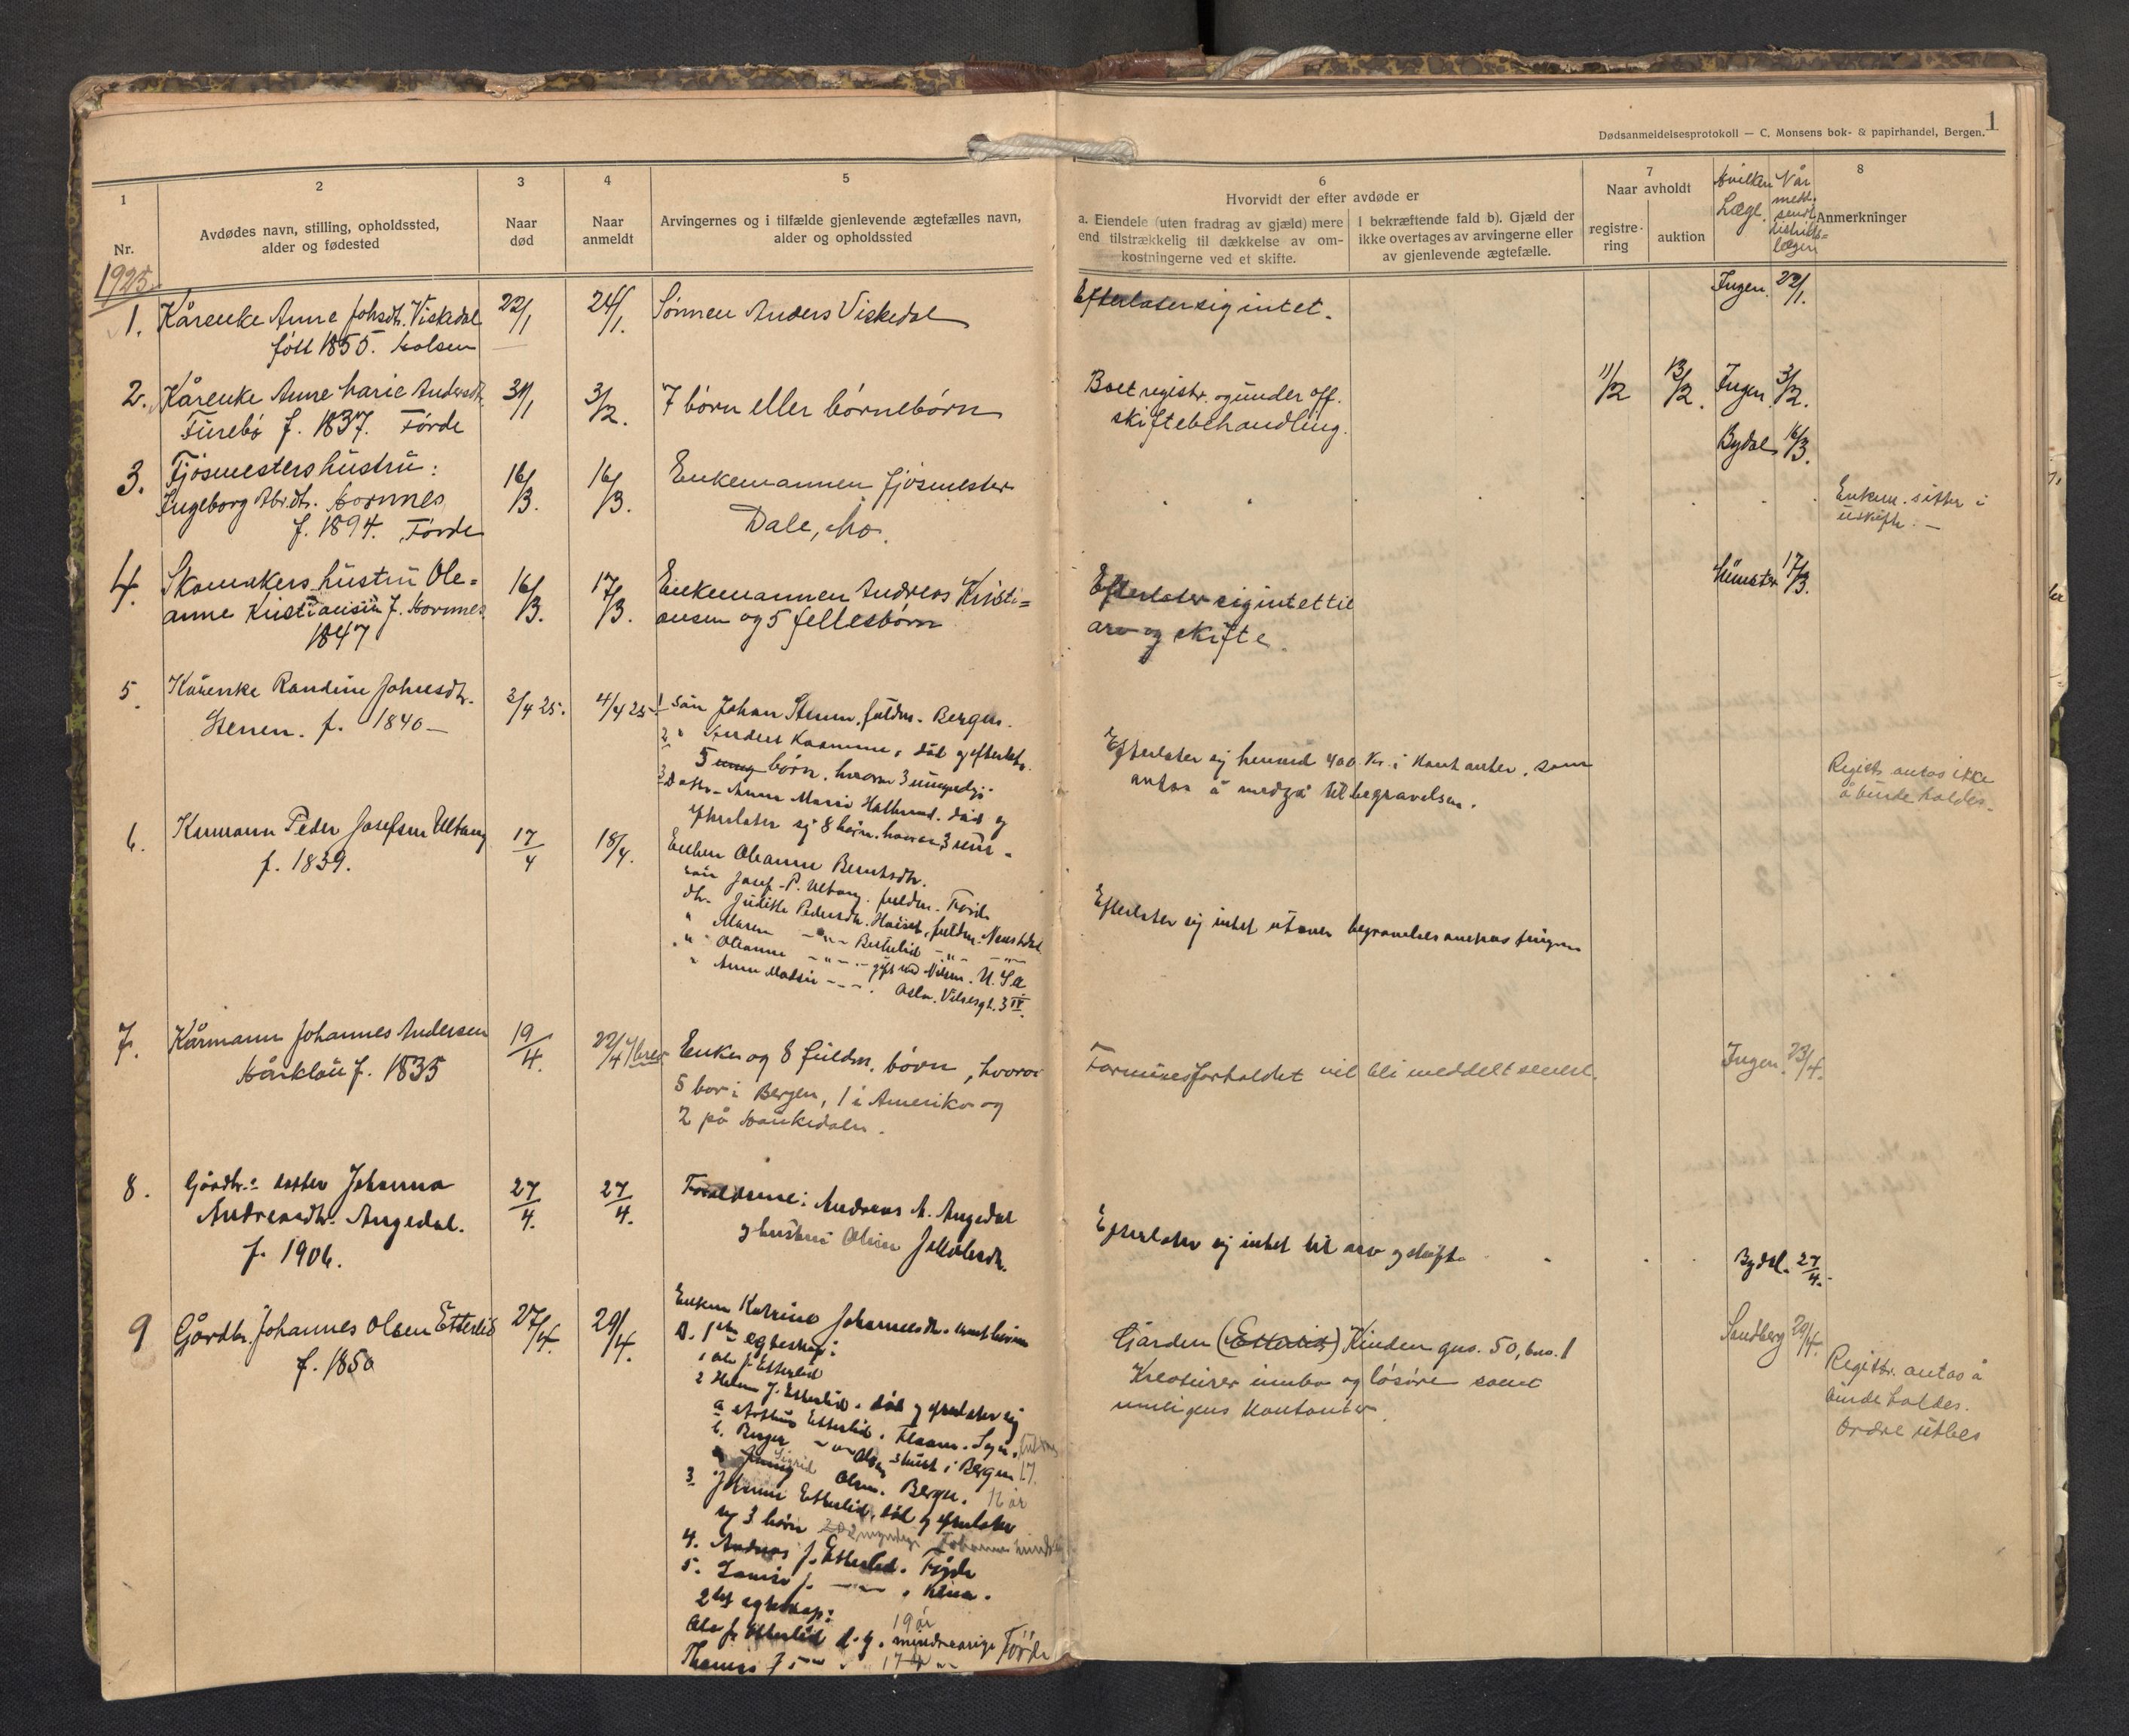 1
Dødsanmeldelsesprotokoll — C. Monsens bok- & papirhandel, Bergen.
1
2
3
4
5
6
7
8
Nr.
Avdødes navn, stilling, opholdssted,
alder og fødested
Naar
død
Naar
anmeldt
Arvingernes og i tilfælde gjenlevende ægtefælles navn,
alder og opholdssted
Hvorvidt der efter avdøde er
a. Eiendele (uten fradrag av gjæld) mere
end tilstrækkelig til dækkelse av om-
kostningerne ved et skifte.
I bekræftende fald b). Gjæld der
ikke overtages av arvingerne eller
av gjenlevende ægtefælle.
Naar avholdt
registre-
ring
auktion
Hvilken
Læge.
Når
medd.
sendt
distrikts=
lægen
Anmerkninger
1925.
1. Kårenke Anne Johsdtr. Viskedal
født 1855. Holsen
22/1
24/1.
Sønnen Anders Viskedal
Efterlater sig intet.
Ingen. 22/1.
2. Kårenke Anne Marie Andersdtr.
Furebø f. 1837. Førde
31/1
3/2.
7 børn eller børnebørn
Boet registr. og under off.
skiftebehandling.
11/2
13/2.
Ingen. 3/2.
3. Fjøsmesters hustru:
Ingeborg Abr.dtr. Hornnes
f. 1894. Førde
16/3.
16/3.
Enkemannen fjøsmester
Dale, Mo.
Bydal 16/3.
Enkem. sitter i
uskifte. —
4. Skomakers hustru Ole=
anne Kristiansen f. Hornnes.
1847
16/3.
17/3.
Enkemannen Andreas Kristi=
ansen og 5 fellesbørn
Efterlater sig intet til
arv og skifte.
17/3.
5. Kårenke Randine Johnsdtr.
Stenen. f. 1840 —
3/4 25.
4/4 25.
1 Søn Johan Stenen, fuldm. Bergen.
2 " død og efterlater
5 børn, hvorav 3 umyndige
3 Datter Anna Marie død og
efterlater sig 8 børn, hvorav 3 um -
Efterlater sig henved 400 Kr. i Kontanter, som
antas å medgå til begravelsen.
Registr. antas ikke
å burde holdes.
6. Kårmann Peder Josefsen Ultang
f. 1839.
17/4
18/4.
Enken Oleanne Berntsdtr.
Søn Josef P. Ultang, fuldm. Førde
dtr. Judithe Pedersdtr. fuldm. Naustdal
" Maren — " —
" Oleanne — " — gift med Nilsen. U.S.A.
" Anna — . Oslo. 3 IV.
Efterlater sig intet utover begravelsesomkostningene
7. Kårmann Johannes Andersen
Hårklau f. 1835
19/4.
22/4 i brev
Enke og 8 fuldm. børn, hvorav
5 bor i Bergen, 1 i Amerika og
2 på Haukedalen.
Formuesforholdet vil bli meddelt senere.
Ingen. 23/4.
8. Gårdbr. datter Johanna
Andreasdtr. Angedal.
f. 1906.
27/4.
27/4.
Foreldrene: Andreas A. Angedal
og hustru Oline Jakobsdtr.
Efterlater sig intet til arv og skifte
Bydal. 27/4.
9 Gårdbr. Johannes Olsen Etterlid
f. 1850
27/4.
29/4.
Enken Katrine Johannesdtr. samt børn
A. 1ste egteskap:
1 Ole J. Etterlid
2 Helene J. Etterlid, død og efterlater sig
a Arthur Etterlid, Flaam, Sogn,
b. Birger — " — Olsen i Bergen 17.
Sigrid Olsen. Bergen. 16 år
3 Johanne Etterlid, død og efterlater
sig 3 børn
4. Andreas J. Etterlid. Førde
5. Lovise J. — " — , Kina.
2det egteskap:
Ole J. Etterlid d.y. mindreårige 19 år Førde
Thomas J — " — 17 "
Gården (Etterlid) Kinden gno. 50, bno. 1
Kreaturer innbo og løsøre samt
muligens Kontanter.
Sandberg 29/4.
Registr. antas å
burde holdes.
Ordre utbes